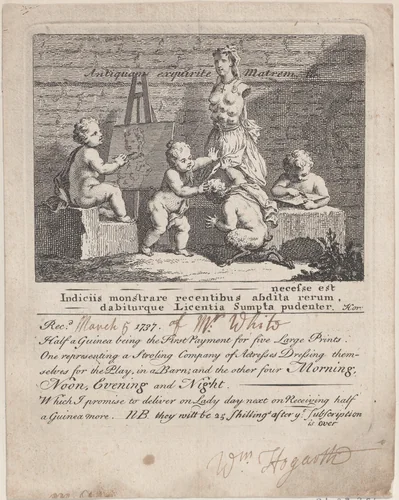 Antiquam exquirite Matrem.
necesse est
Indiciis monstrare recentibus abdita rerum,
dabiturque Licentia Sumpta pudenter. Hor.
Rec.d March 6 1737 of Mr White
Half a Guinea being the First Payment for five Large Prints.
One representing a Stroling Company of Actresses Dressing them-
selves for the Play, in a Barn; and the other four Morning,
Noon, Evening and Night.
Which I promise to deliver on Lady day next on Receiving half
a Guinea more. N.B. they will be 25 Shillings after ye Subscription
is over
Wm Hogarth